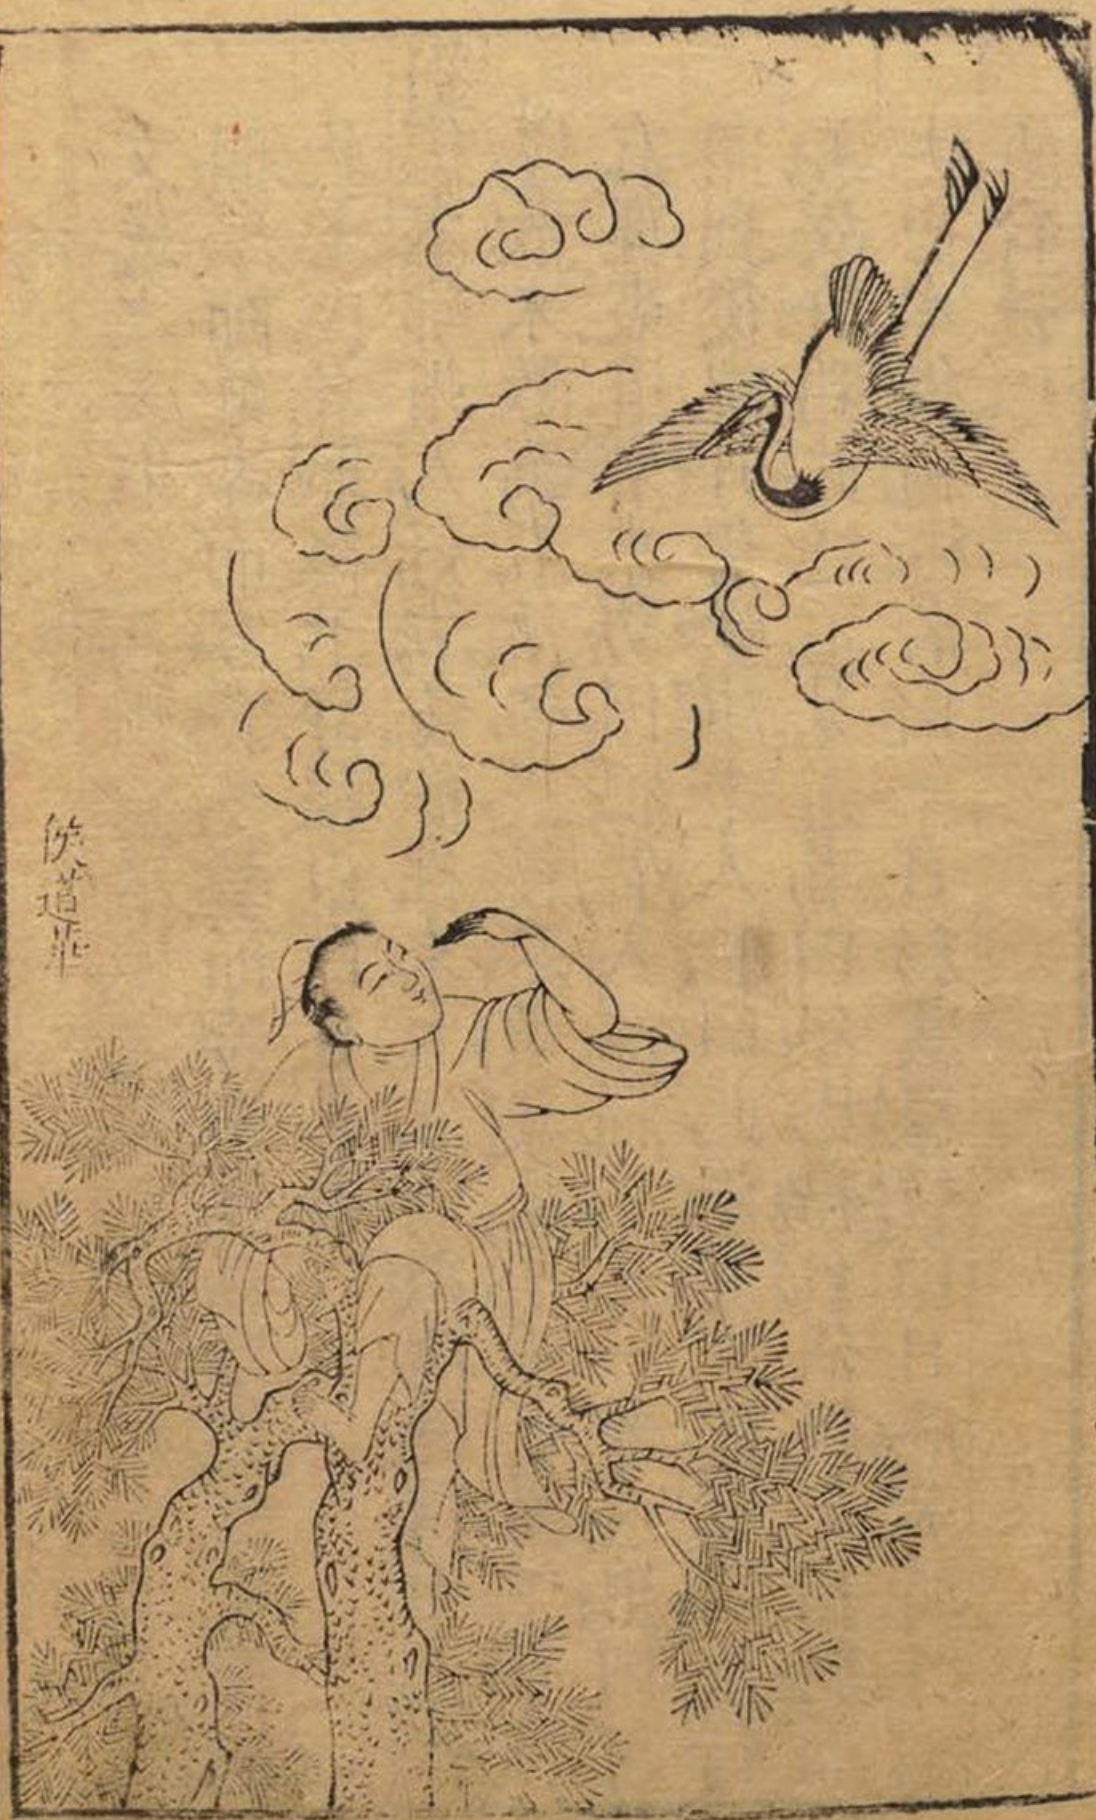 侯道華